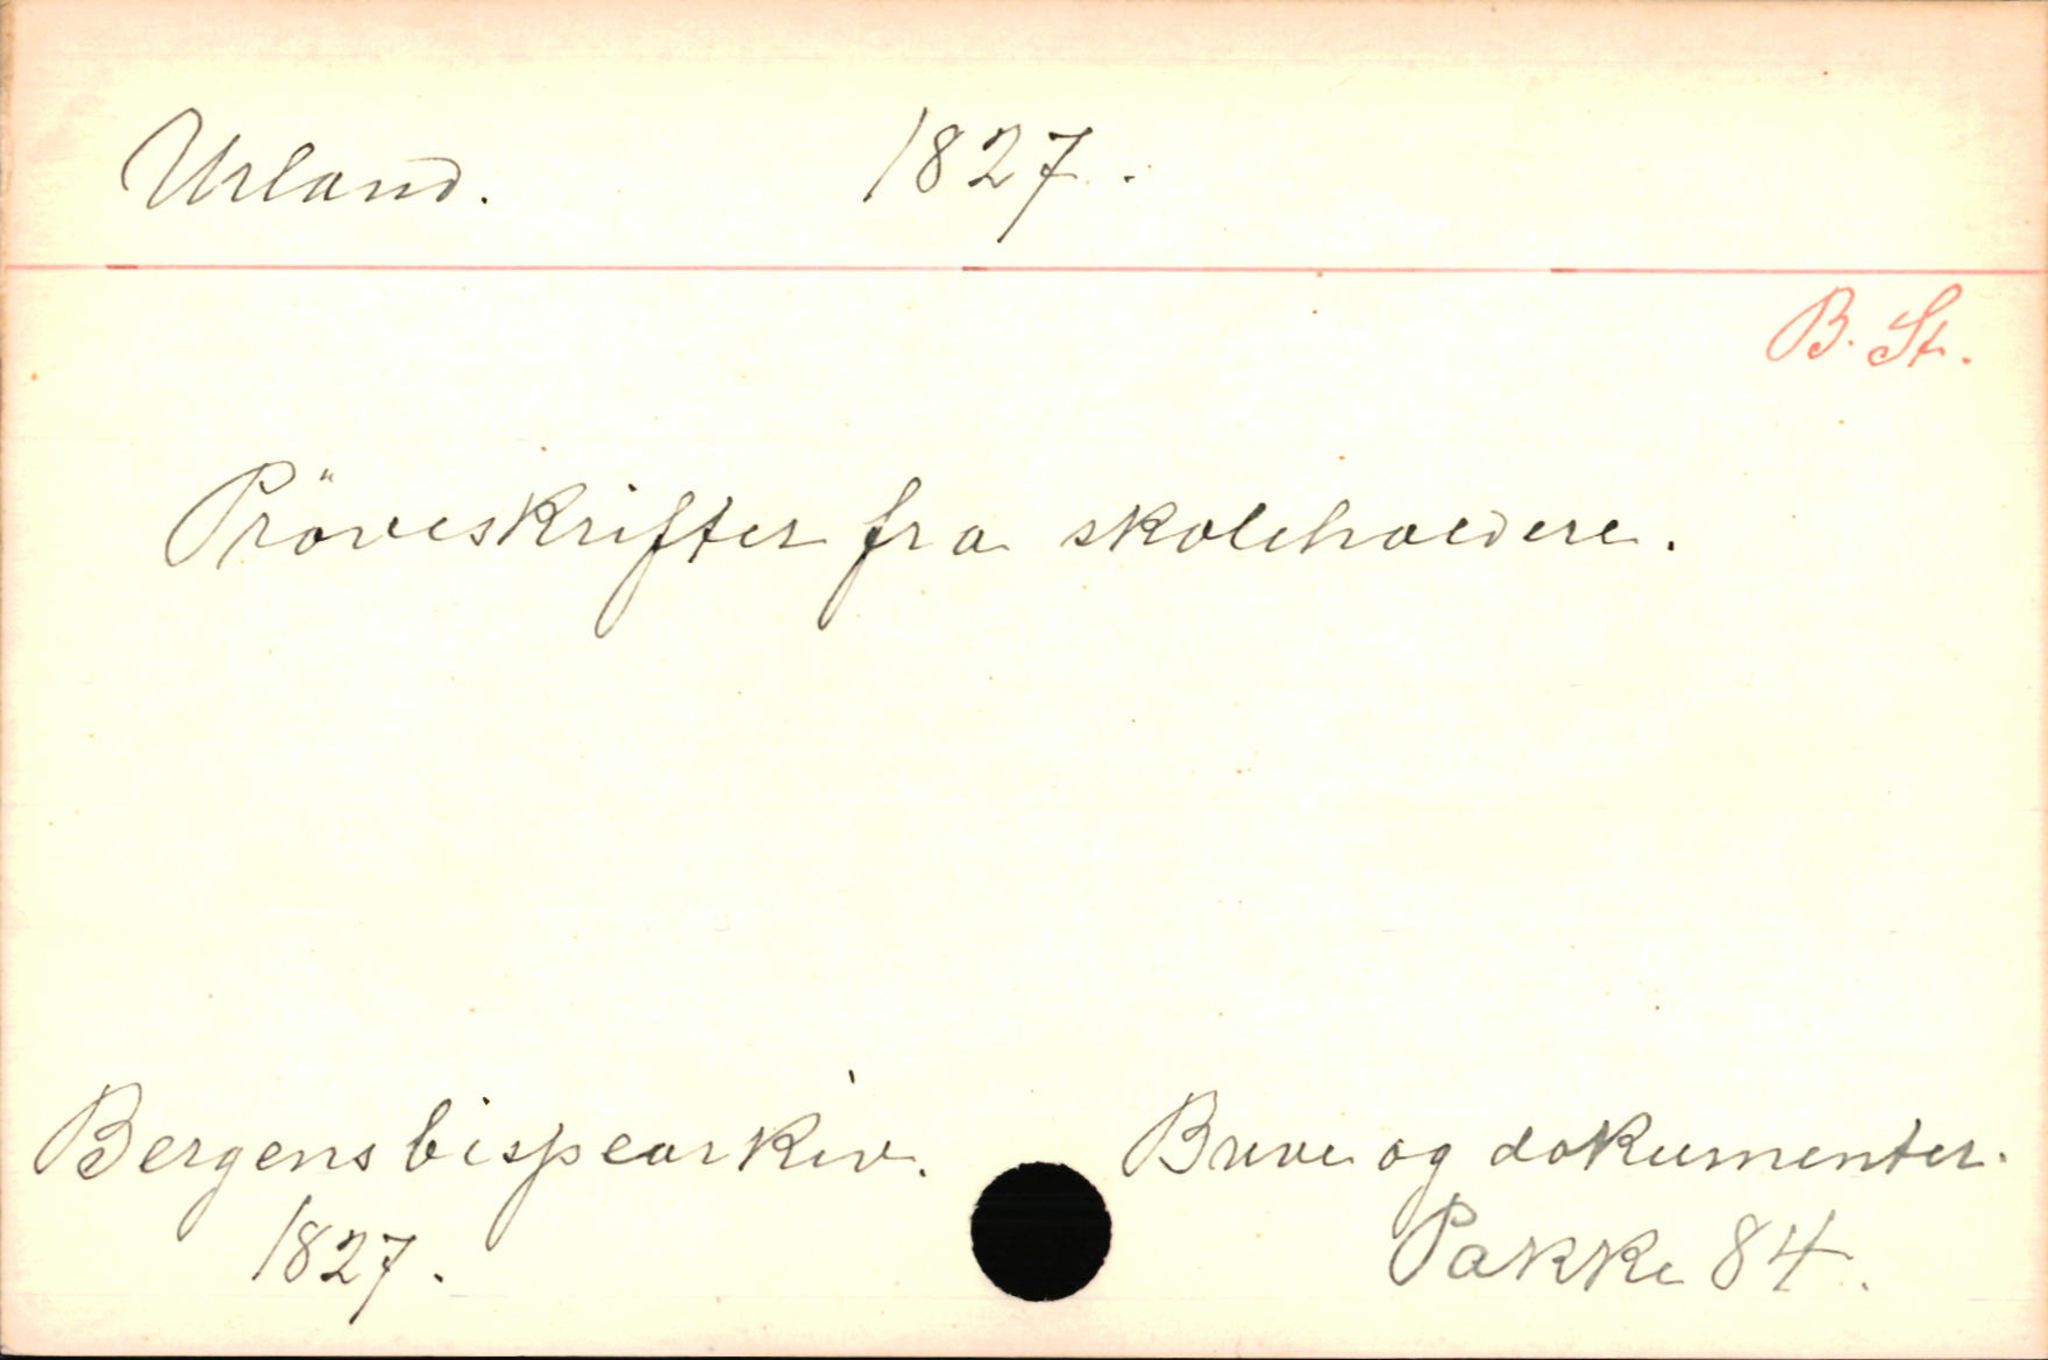 Urland. 1827.
B. St.
Pröveskrifter fra skoleholdere.
Bergens bispearkiv. Breve og dokumenter.
1827. Pakke 84.